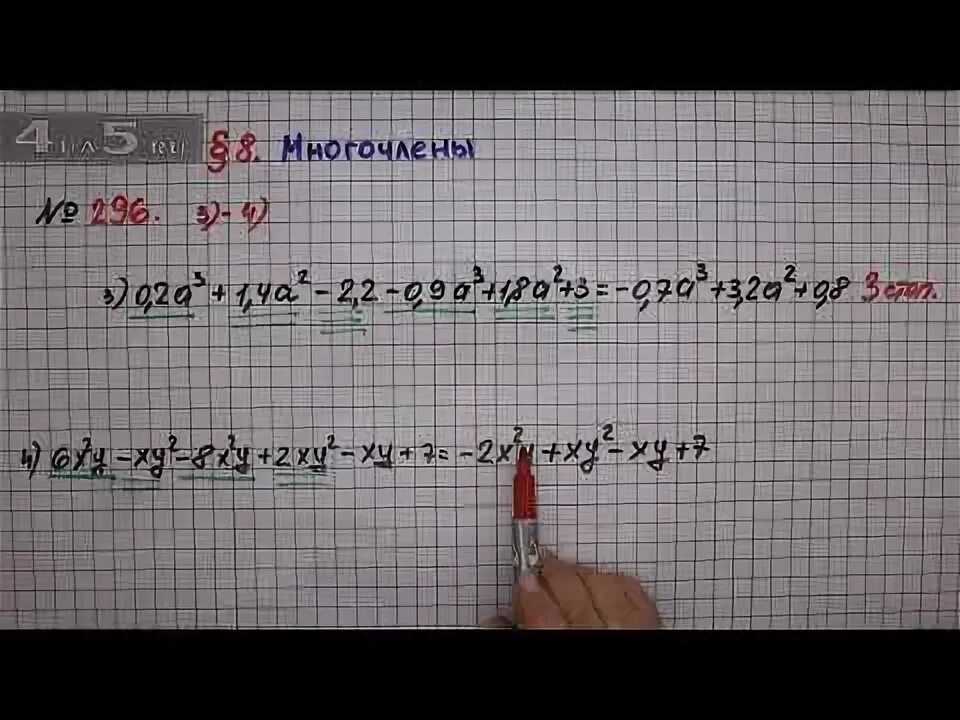 § 8. Многочлены
№ 296. 3)-4)
3) 0,2a³ + 1,4a² - 2,2 - 0,9a³ + 1,8a² + 3 = -0,7a³ + 3,2a² + 0,8 3 степ.
4) 6x²y - xy² - 8x²y + 2xy² - xy + 7 = -2x²y + xy² - xy + 7